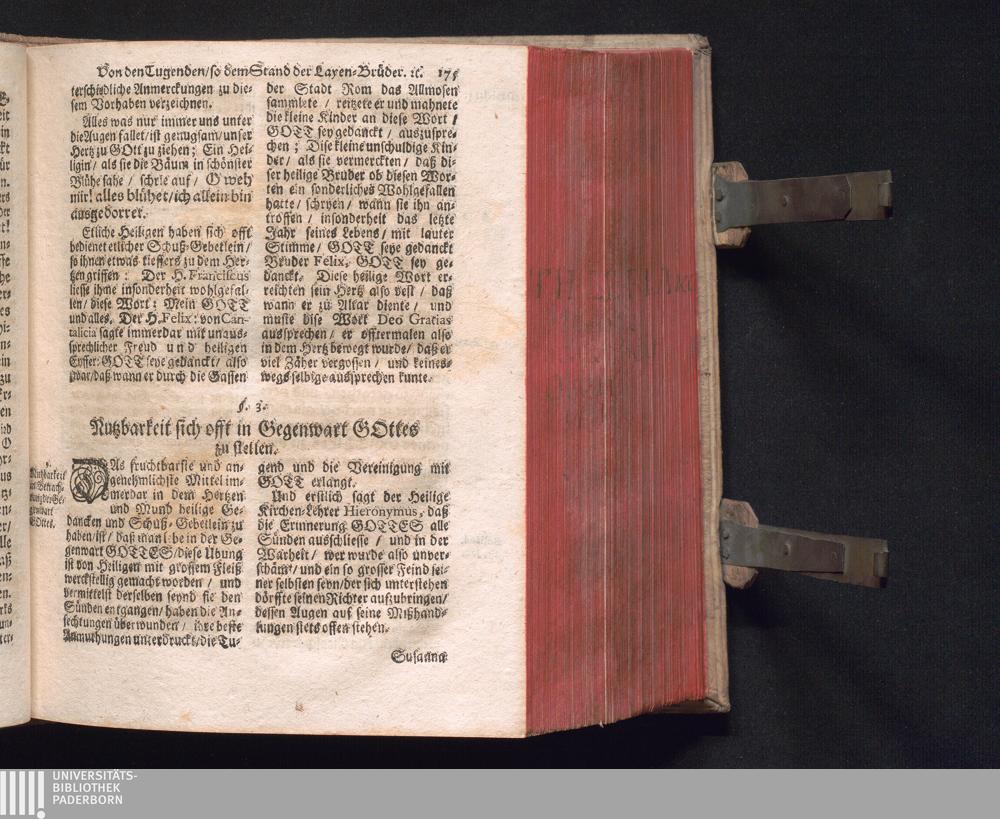 Von den Tugenden/ so dem Stand der Layen-Brüder. ꝛc. 175
terschidliche Anmerckungen zu die-
sem Vorhaben verzeichnen.
Alles was nur immer uns unter
die Augen fallet/ ist genugsam/ unser
Hertz zu GOtt zu ziehen; Ein Hei-
ligin/ als sie die Bäum in schönster
Blühe sahe/ schrie auf/ O weh
mir! alles blühet/ ich allein bin
ausgedorret.
Etliche Heiligen haben sich offt
bedienet etlicher Schuß-Gebetlein/
so ihnen etwas tieffers zu dem Her-
tzen griffen: Der H. Franciscus
liesse ihme insonderheit wohlgefal-
len/ diese Wort: Mein GOTT
und alles. Der H. Felix: von Can-
talicia sagte immerdar mit unaus-
sprechlicher Freud und heiligen
Eyffer: GOTT seye gedanckt/ also
zwar/ daß wann er durch die Gassen
der Stadt Rom das Allmosen
sammlete/ reitzete er und mahnete
die kleine Kinder an diese Wort/
GOTT sey gedanckt/ auszuspre-
chen; Dise kleine unschuldige Kin-
der/ als sie vermerckten/ daß di-
ser heilige Bruder ob diesen Wor-
ten ein sonderliches Wohlgefallen
hatte/ schryen/ wann sie ihn an-
troffen/ insonderheit das letzte
Jahr seines Lebens/ mit lauter
Stimme/ GOTT seye gedanckt
Bruder Felix, GOTT sey ge-
danckt. Diese heilige Wort er-
reichten sein Hertz also vest/ daß
wann er zu Altar diente/ und
muste dise Wort Deo Gratias
aussprechen/ er offtermalen also
in dem Hertz bewegt wurde/ daß er
viel Zäher vergossen/ und keines-
wegs selbige aussprechen kunte.
§. 3.
Nutzbarkeit sich offt in Gegenwart GOttes
zu stellen.
1.
Nutzbarkeit
in Betrach-
tung der Ge-
genwart
GOttes.
DAs fruchtbarste und an-
genehmlichste Mittel im-
merdar in dem Hertzen
und Mund heilige Ge-
dancken und Schuß-Gebetlein zu
haben/ ist/ daß man lebe in der Ge-
genwart GOTTES/ diese Übung
ist von Heiligen mit grossem Fleiß
werckstellig gemacht worden/ und
vermittelst derselben seynd sie den
Sünden entgangen/ haben die An-
fechtungen überwunden/ ihre beste
Anmuthungen unterdruckt/ die Tu-
gend und die Vereinigung mit
GOTT erlangt.
Und erstlich sagt der Heilige
Kirchen-Lehrer Hieronymus, daß
die Erinnerung GOTTES alle
Sünden ausschliesse/ und in der
Warheit/ wer wurde also unver-
schämt/ und ein so grosser Feind sei-
ner selbsten seyn/ der sich unterstehen
dörffte seinen Richter aufzubringen/
dessen Augen auf seine Mißhand-
lungen stets offen stehen.
Susanna
UNIVERSITÄTS-
BIBLIOTHEK
PADERBORN